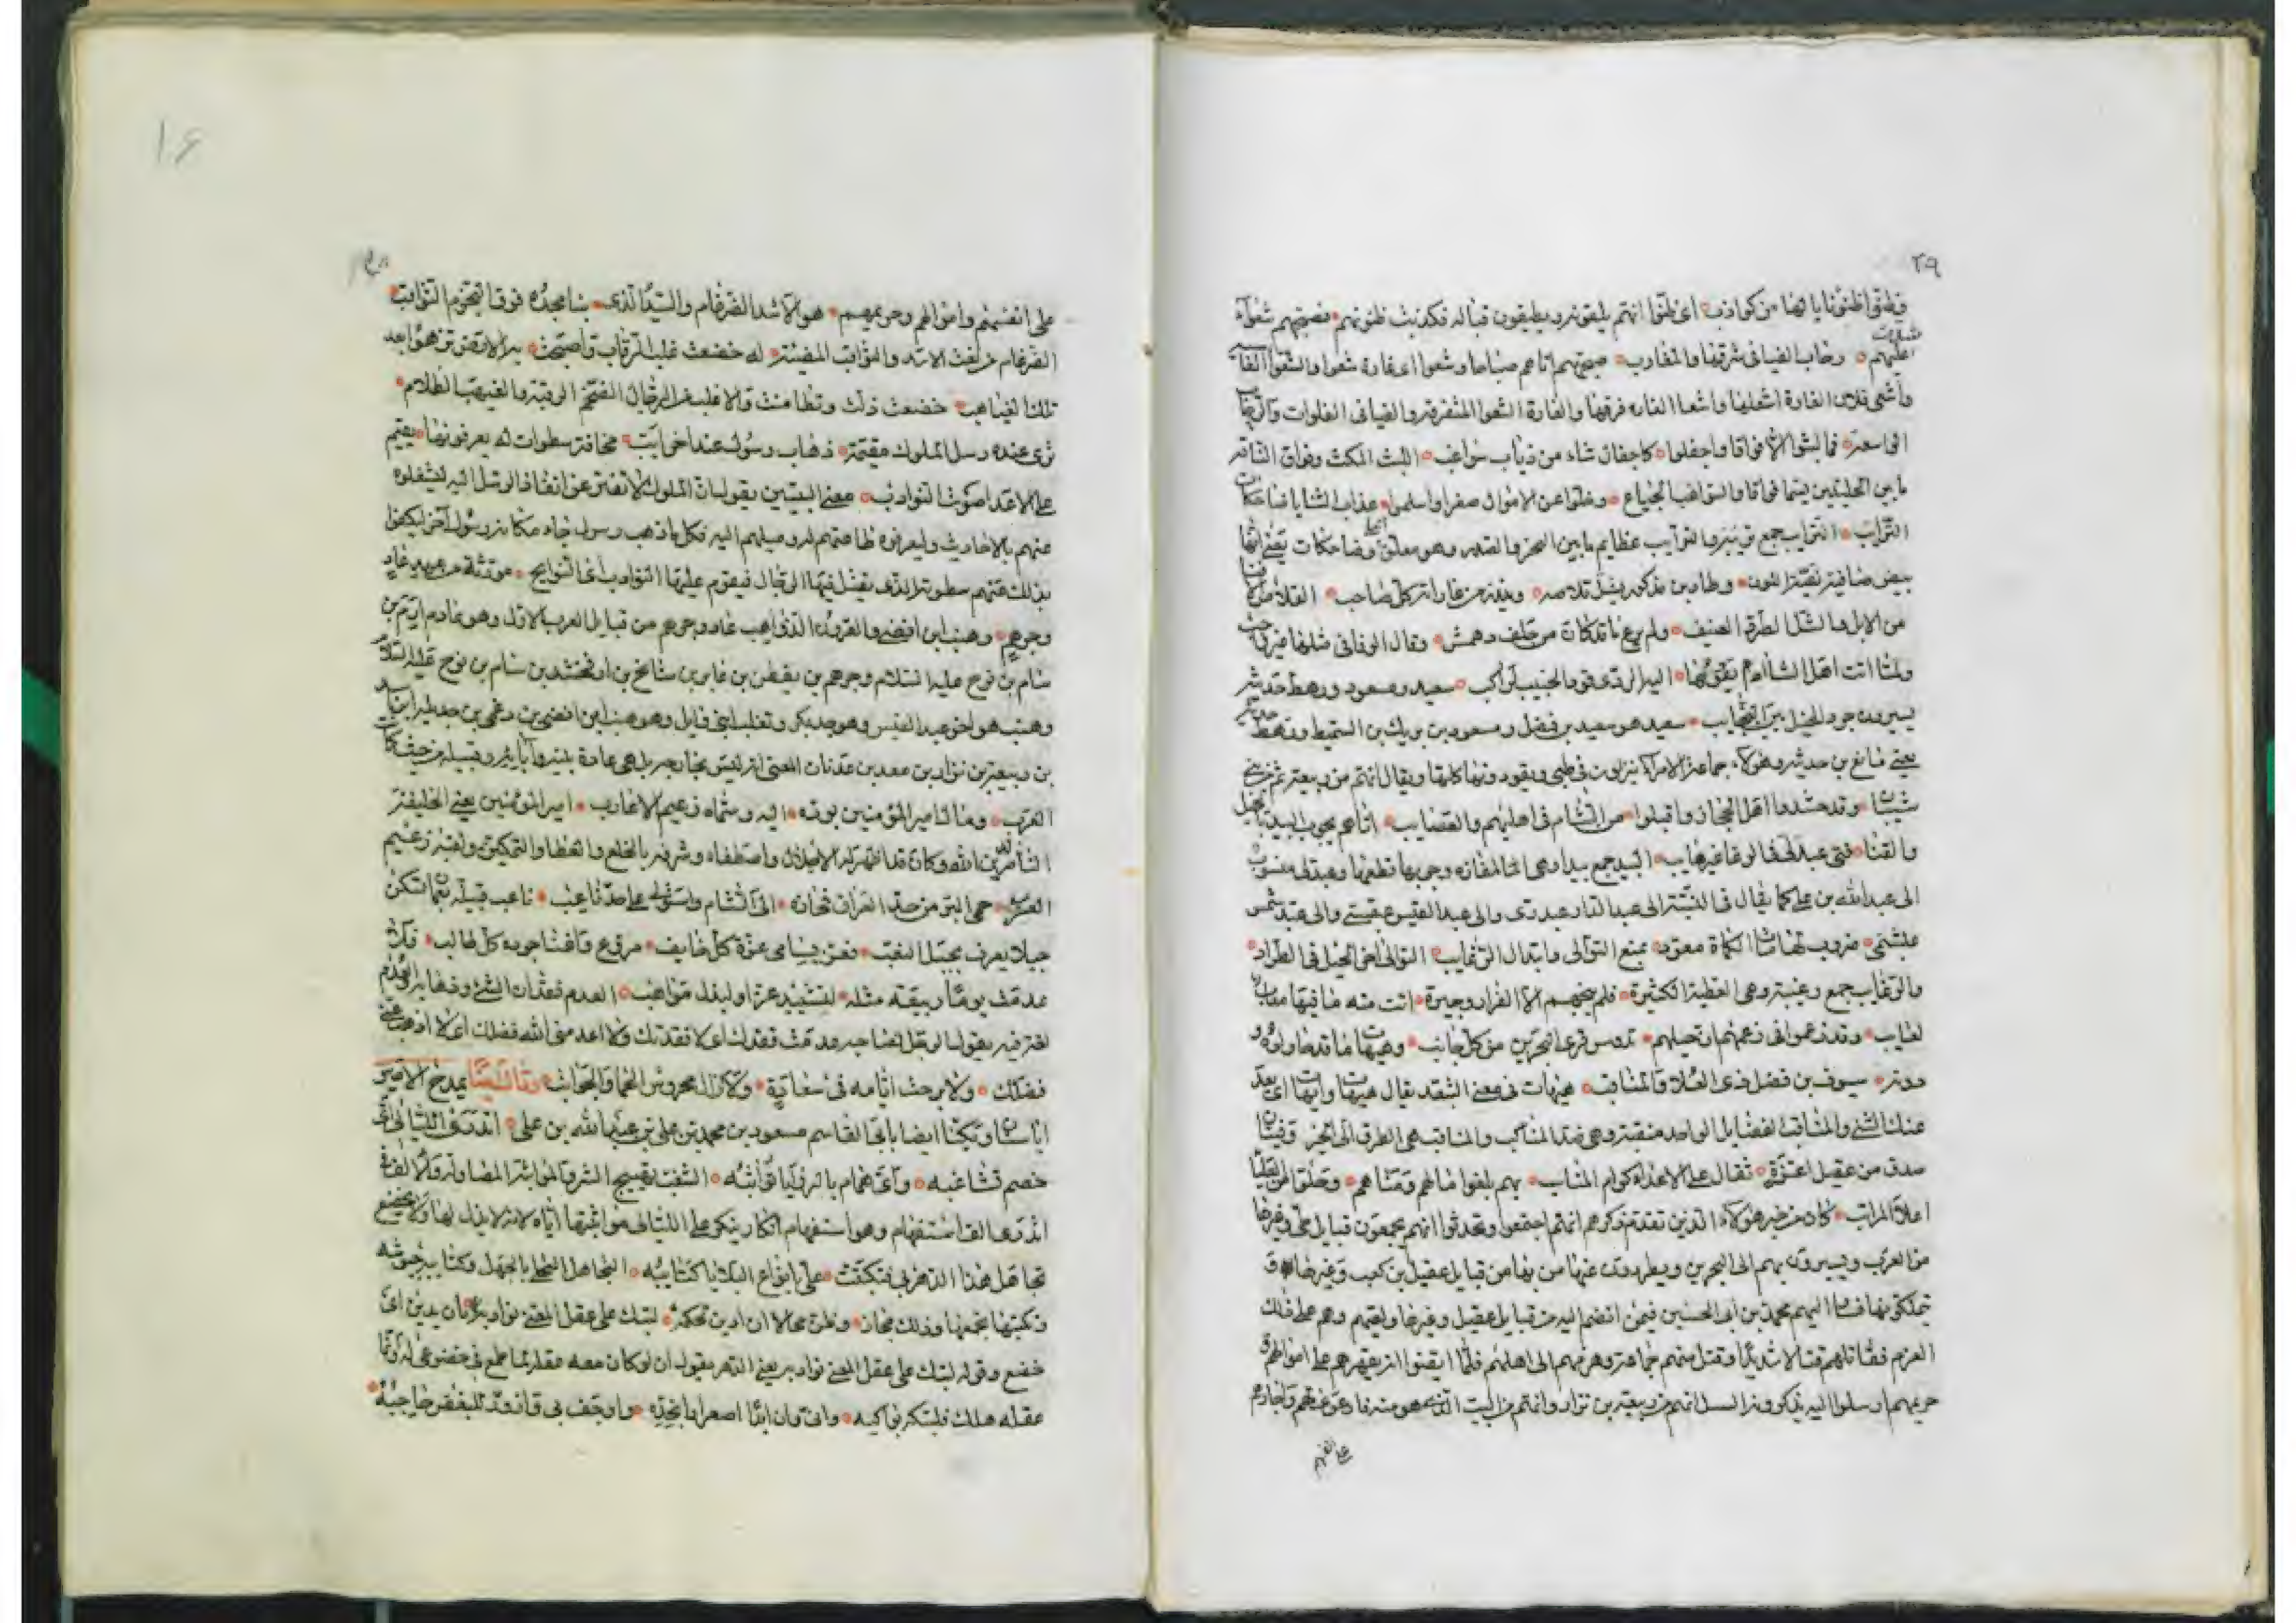 ٢٩
وظنوا ظنونا يا لها من كواذب اى ظنوا انهم يليقونه ويطيقون قباله فكذبت ظنونهم فصبحهم شعواء
عليهم وجاب الفيافى شرقها والمغارب صبحهم اتاهم صباحا وشعوا اى غارة شعوا والشعوا الغا
واشعى فلان الغارة اشعلها واشعا الغاره فرقها والغارة الشعوا المتفرقه والفيافى الفلوات والرحاب
الواسعة فما لبثوا الا فواقا واجفلوا كاجفال شاء من ذياب سواغب اللبث المكث وفواق الناقه
ما بين الحلبتين بينهما فواقا والسواغب الجياع وخلوا عن الاموال صفرا واسلموا عذاب الثنايا ضاحكات
الترايب الترايب جمع تريبه والترآيب عظايم ما بين النحر والصدر وهو معلق الحلى وضاحكات يعنى انها
بيض صافية نقية اللون وطاه بن مذكور يشل قلاصه ويحذر من غاراته كل صاحب القلاص
من الابل والشل الطرد العنيف ولم يرع ما قد كان من خلف دهمش وقال الوفا فى مثلها غير
ولما اتت اهل الشآم يقودها اليه الردى قود الجنيب لراكب سعيد ومسعود ورهط حديثه
يسيرون جرد الخيل بين النجايب سعيد هو سعيد بن فضل ومسعود بن بريك بن السميط ورهط حديثه
يعنى مانع بن حديثه وهولاء جماعة الامراء ينزلون فى طى ويقودونها كلها ويقال انهم من ربيعة ثم من بنى
شيبان وقد حشدوا اهل الحجاز واقبلوا من الشام فى اهليهم والقضايب اتاهم يجوب البيد بالخيل
والقنا فتى عبدلى فى الوغا غير هايب البيد جمع بيدا وهى المفازه وجوبها قطعها وعبدلى منسوب
الى عبد الله بن على كما يقال فى النسبة الى عبد الدار عبدرى والى عبد القيس عبقسى والى عبد شمس
عبشمى ضروب لهامات الكماة معود بمنع التوالى وابتذال الرغايب التوالى اخر الخيل فى الطراد
والرغايب جمع رغيبة وهى العطية الكثيرة فلم ينجهم الا الفرار وجيرة اتت منه ما فيها معاب
لعايب وقد زعموا فى زعمهم ورحيلهم تدوس قرى البحرين من كل جانب وهيهات ما قد حاولوه و
دونه سيوف بن فضل ذى العلا والمناقب هيهات فى معنى البعد يقال هيهات وايهات اى بعد
عنك الشى والمناقب الفضايل الواحد منقبة وهى ضد المثالب والمناقب هى الطرق الى الخير وفتيان
صدق من عقيل اعزة ثقال على الاعداء كرام المناسب بهم بلغوا مالهم ومناهم وحلوا من العليا
اعلا المراتب كان من خبر هولاء الذين تقدم ذكرهم انهم اجتمعوا وتحدثوا انهم يجمعون قبايل طى وغيرها
من العرب ويسيرون بهم الى البحرين ويطردون عنها من بها من قبايل عقيل بن كعب وغيرها و
تملكونها فسار اليهم محمد بن ابى الحسين فيمن انضم اليه من قبايل عقيل وغيرها ولقيهم وهم على ذلك
العزم فقاتلهم قتالا شديدا وقتل منهم جماعة وهزمهم الى اهلهم فلما ايقنوا انه يقهرهم على اموالهم و
حريمهم ارسلوا اليه يذكرونه النسل انهم من ربيعة بن نزار وانهم من البيت الذى هو منه فارعوى عنهم واجارهم
على انفسهم
١٦
على انفسهم واموالهم وحريمهم هو الاسد الضرغام والسيد الذى بنا مجده فوق النجوم الثواقب
الضرغام من نعت الاسد والثواقب المضيئة له خضعت غلب الرقاب واصبحت به الارض تزهو بعد
تلك الغياهب خضعت ذلت وتطامنت والاغلب من الرجال الضخم الرقبة والغيهب الظلام
ترى عنده رسل الملوك مقيمة ذهاب رسول عند اخر آيب مخافة سطوات له يعرفونها يقيم
على الاعداء صوت النوادب معنى البيتين يقول ان الملوك لا تفتر عن انفاذ الرسل اليه ليشغلوه
عنهم بالاحاديث وليعرفوه طاعتهم له وميلهم اليه فكل ما ذهب رسول جاء مكانه رسول آخر ليكفوا
بذلك عنهم سطوته الذى يقتل فيها الرجال فيقوم عليها النوادب اى النوايح مورثة من عهد عاد
وجرهم وهنب ابن افصى والقرون الذواهب عاد وجرهم من قبايل العرب الاول وهو عاد بن ارم بن
سام بن نوح عليه السلام وجرهم بن يقطن بن عابر بن شالخ بن ارفخشد بن سام بن نوح عليه السلام
وهنب هو اخو عبد القيس وهو جد بكر وتغلب ابنى وايل وهو هنب ابن افصى بن دعمى بن جديلة ابن اسد
بن ربيعة بن نزار بن معد بن عدنان المعنى انه ليس بحادث بل هى عادة بنيه وآبايه وقبيله من حيث كانت
العرب وما لامير المؤمنين بوده اليه وسماه زعيم الاعارب امير المؤمنين يعنى الخليفة
الناصر لدين الله وكان قد اظهر له الاجلال واصطفاه وشرفه بالخلع والعطا والتمكين ولقبه زعيم
العرب حمى البر من حد العراق فحازه الى الشام واستولى على حد ناعب ناعب قبيلة بعمان تسكن
جبلا يعرف بجبل النعب فعن بسامى عزة كل خايف مروع وافنا جوده كل طالب فلا
عدمت يوما ربيعة مثله لتشييد عز او لبذل مواهب العدم فقدان الشى وذهابه والعدم
لغة فيه يقول الرجل لصاحبه عدمت فقدك اى لا فقدتك ولا اعدمنى الله فضلك اى لا اذهب عنى
فضلك ولا برحت ايامه فى سعادة ولا زال محروس الحما والجوانب وقال ايضا يمدح الامير
ايا سنان ويكنا ايضا بابى القاسم مسعود بن محمد بن على بن عبد الله بن على اتدرى الليالى اى
خصم تشاغبه واى همام بالرزايا تواثبه الشغب تهييج الشر والمواثبة المصاولة والالف فى
اتدرى الف استفهام وهو استفهام انكار ينكر على الليالى مواثبتها اياه لانه لا يذل لها ولا يخضع
تجاهل هذا الدهر بى فتكتبت على بانواع البلايا كتايبه التجاهل التحلى بالجهل وكتايبه جيوشه
وتكتبها تجمعها وذلك مجاز وظن محالا ان ادين لحكمه لتبك على عقل المعنى نوادبه دان يدين اى
خضع وقوله لتبك على عقل المعنى نوادبه يعنى الدهر يقول ان لو كان معه عقل لما طمع فى خضوعى له واما
عقله هلك فلتبكه بواكيه وانى وان ابدا اصعرارا بخده واوجف بى واوقد للبغض حاجبه